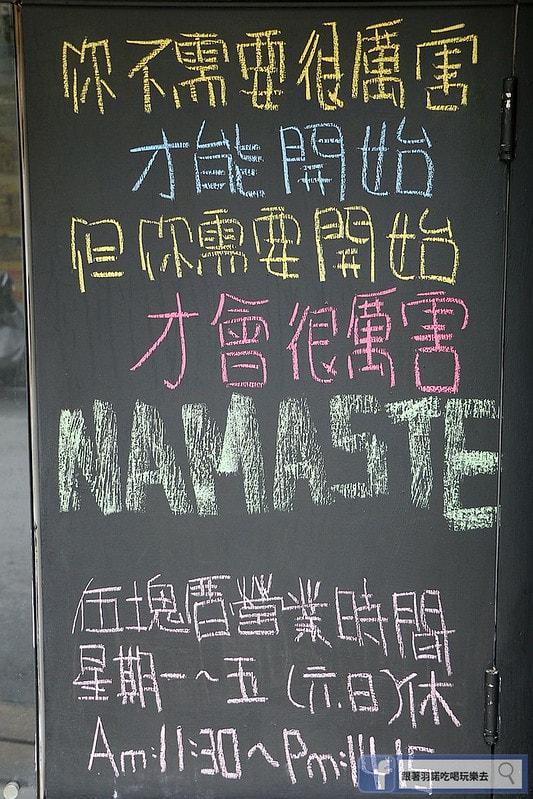 你不需要很厲害
才能開始
但你需要開始
才會很厲害
NAMASTE
伍塊厝營業時間
星期一~五 (六.日)休
Am:11:30~Pm:
跟著羽諾吃喝玩樂去